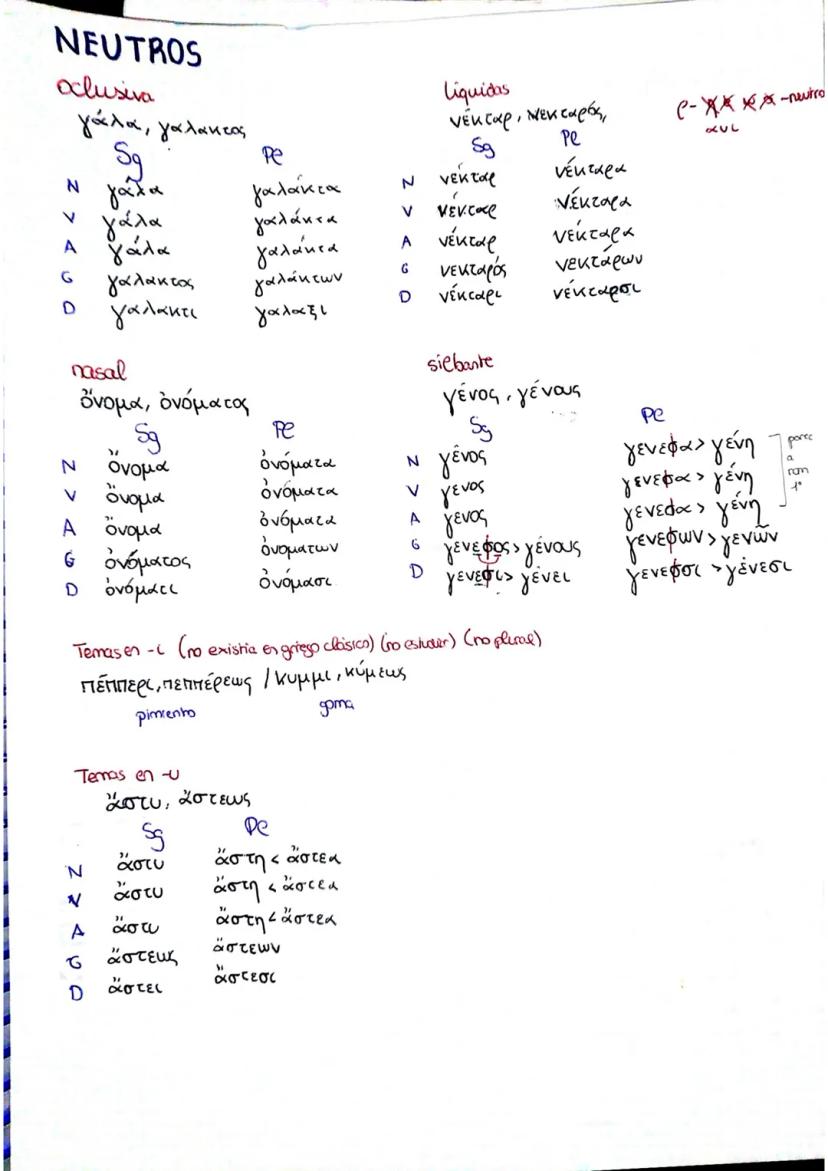 NEUTROS
oclusiva
γάλα, γαλακτος
Sg Pl
N γάλα γαλάκτα
V γάλα γαλάκτα
A γάλα γαλάκτα
G γαλακτος γαλάκτων
D γαλακτι γαλαξι
líquidas
νέκταρ, νεκταρός,
ρ- -neutro
αυι
Sg Pl
N νέκταρ νέκταρα
V νέκταρ νέκταρα
A νέκταρ νέκταρα
G νεκταρός νεκτάρων
D νέκταρι νέκταρσι
nasal
ὄνομα, ὀνόματος
Sg Pl
N ὄνομα ὀνόματα
V ὄνομα ὀνόματα
A ὄνομα ὀνόματα
G ὀνόματος ὀνοματων
D ὀνόματι ὀνόμασι
silbante
γένος, γένους
Sg Pl
N γένος γενεσα > γένη
V γενος γενεσα > γένη
A γενος γενεσα > γένη
G γενεσος > γένους γενεσων > γενῶν
D γενεσι > γένει γενεσσι > γένεσι
a
nom
1º
Temas en -ι (no existía en griego clásico) (no estudiar) (no plural)
πέππερι, πεππέρεως / κυμμι, κύμεως
pimiento goma
Temas en -υ
ἄστυ, ἄστεως
Sg Pl
N ἄστυ ἄστη < ἄστεα
V ἄστυ ἄστη < ἄστεα
A ἄστυ ἄστη < ἄστεα
G ἄστεως ἄστεων
D ἄστει ἄστεσι